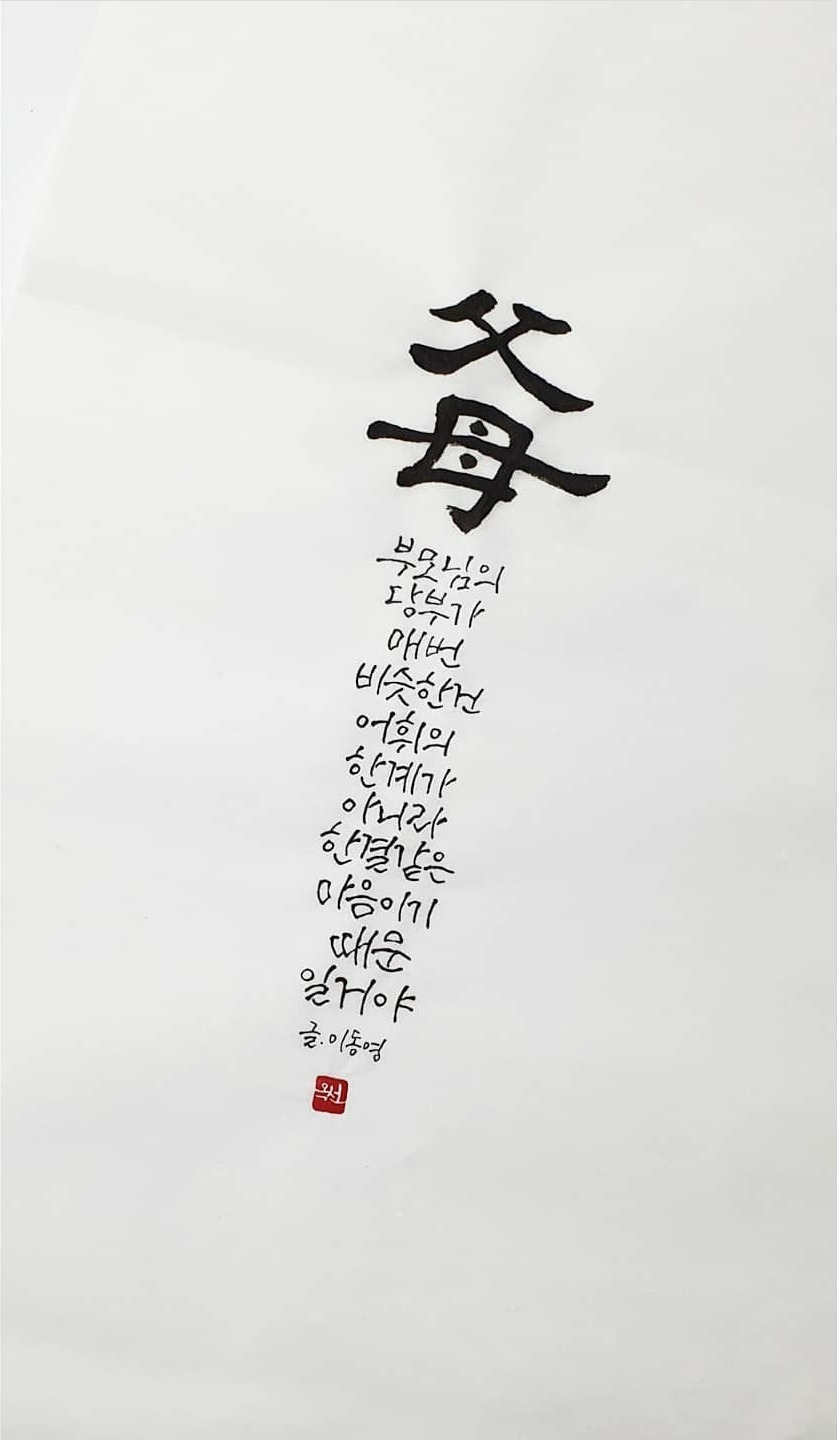 父
母
부모님의
당부가
매번
비슷한건
어휘의
한계가
아니라
한결같은
마음이기
때문
일거야
글.이동영